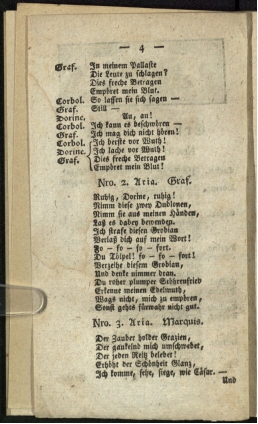 — 4 —
Graf. In meinem Pallaste
Die Leute zu schlagen?
Dies freche Betragen
Empöret mein Blut.
Corbol. So lassen sie sich sagen —
Graf. Still —
Dorine. An, an!
Corbol. Ich kann es beschwören —
Graf. Ich mag dich nicht hören!
Corbol. Ich berste vor Wuth!
Dorine. Ich lache vor Wuth!
Graf. Dies freche Betragen
Empöret mein Blut!
Nro. 2. Aria. Graf.
Ruhig, Dorine, ruhig!
Nimm diese zwey Dublonen,
Nimm sie aus meinen Händen,
Laß es dabey bewenden.
Ich strafe diesen Grobian
Verlaß dich auf mein Wort!
Fo – fo – fo – fort.
Du Tölpel! fo – fo – fort!
Verzeihe diesem Grobian,
Und denke nimmer dran.
Du roher plumper Bährentrieb
Erkenne meinen Edelmuth,
Wags nicht, mich zu empören,
Sonst gehts fürwahr nicht gut.
Nro. 3. Aria. Marquis.
Der Zauber holder Grazien,
Der gaukelnd mich umschwebet,
Der jeden Reitz belebet!
Erhöht der Schönheit Glanz,
Ich komme, sehe, siege, wie Cäsar. —
Und